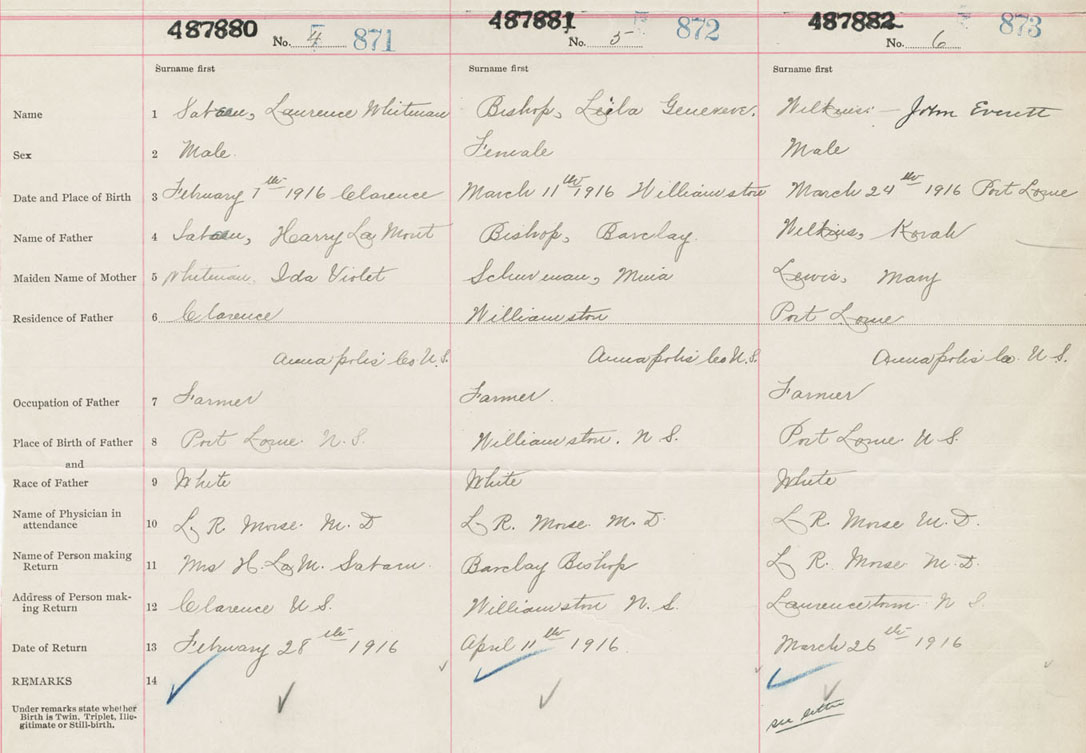 487880 487881 487882
No. 4 871 No. 5 872 No. 6 873
Surname first Surname first Surname first
Name 1 Laurence Whitman Bishop, Leila Genevieve. Wilkins — John Everett
Sex 2 Male. Female Male
Date and Place of Birth 3 February 7th 1916 Clarence March 11th 1916 Williamston March 24th 1916 Port Lorne
Name of Father 4 Harry La Mont Bishop, Barclay. Wilkins, Korah
Maiden Name of Mother 5 Whitman, Ida Violet Lewis, Mary
Residence of Father 6 Clarence Williamston Port Lorne
Annapolis Co N.S. Annapolis Co N.S. Annapolis Co. N S.
Occupation of Father 7 Farmer Farmer. Farmer
Place of Birth of Father 8 Port Lorne N.S. Williamston. N S. Port Lorne N S.
and
Race of Father 9 White White White
Name of Physician in
attendance 10 L R Morse M. D L R. Morse M. D. L R. Morse M. D.
Name of Person making
Return 11 Mrs H. La M. Barclay Bishop L R. Morse M. D.
Address of Person mak-
ing Return 12 Clarence N S. Williamston N. S. Laurencetown N S.
Date of Return 13 February 28th 1916 April 11th 1916. March 26th 1916
REMARKS 14
Under remarks state whether
Birth is Twin, Triplet, Ille-
gitimate or Still-birth.
see letter